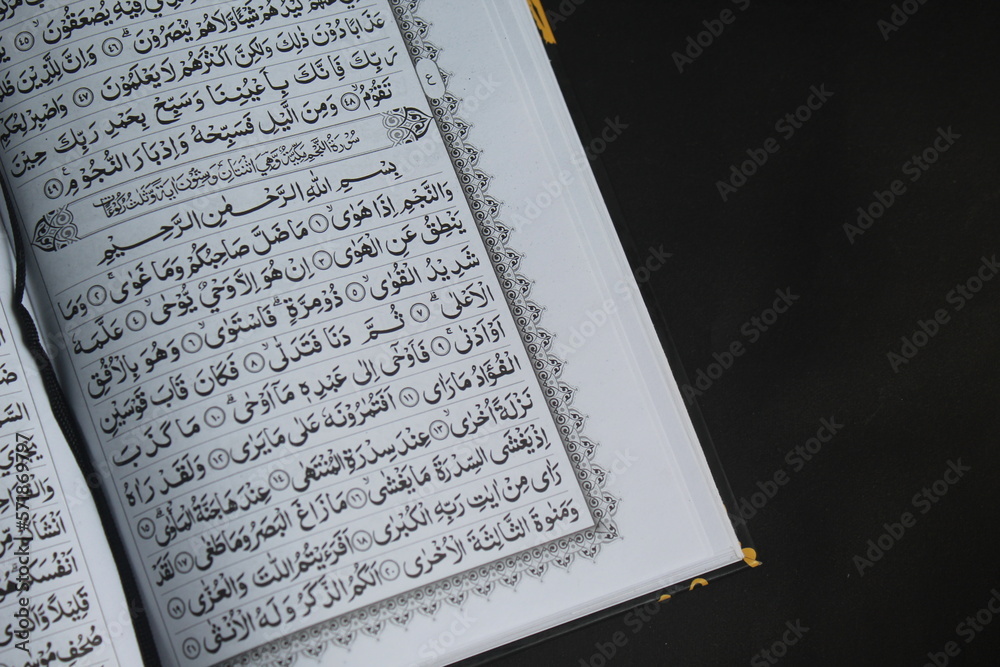 فِيْهِ يُصْعَقُوْنَ ۝٤٥
شَيْئًا وَّلَا هُمْ يُنْصَرُوْنَ ۝٤٦ وَاِنَّ لِلَّذِيْنَ
عَذَابًا دُوْنَ ذٰلِكَ وَلٰكِنَّ اَكْثَرَهُمْ لَا يَعْلَمُوْنَ ۝٤٧ وَاصْبِرْ لِحُكْمِ
رَبِّكَ فَاِنَّكَ بِاَعْيُنِنَا وَسَبِّحْ بِحَمْدِ رَبِّكَ حِيْنَ
تَقُوْمُ ۝٤٨ وَمِنَ الَّيْلِ فَسَبِّحْهُ وَاِدْبَارَ النُّجُوْمِ ۝٤٩
سُوْرَةُ النَّجْمِ مَكِّيَّةٌ وَّهِيَ اثْنَتَانِ وَسِتُّوْنَ اٰيَةً وَّثَلٰثُ رُكُوْعَاتٍ
بِسْمِ اللّٰهِ الرَّحْمٰنِ الرَّحِيْمِ
وَالنَّجْمِ اِذَا هَوٰى ۝١ مَا ضَلَّ صَاحِبُكُمْ وَمَا غَوٰى ۝٢ وَمَا
يَنْطِقُ عَنِ الْهَوٰى ۝٣ اِنْ هُوَ اِلَّا وَحْيٌ يُّوْحٰى ۝٤ عَلَّمَهٗ
شَدِيْدُ الْقُوٰى ۝٥ ذُوْ مِرَّةٍ فَاسْتَوٰى ۝٦ وَهُوَ بِالْاُفُقِ
الْاَعْلٰى ۝٧ ثُمَّ دَنَا فَتَدَلّٰى ۝٨ فَكَانَ قَابَ قَوْسَيْنِ
اَوْ اَدْنٰى ۝٩ فَاَوْحٰى اِلٰى عَبْدِهٖ مَا اَوْحٰى ۝١٠ مَا كَذَبَ
الْفُؤَادُ مَا رَاٰى ۝١١ اَفَتُمٰرُوْنَهٗ عَلٰى مَا يَرٰى ۝١٢ وَلَقَدْ رَاٰهُ
نَزْلَةً اُخْرٰى ۝١٣ عِنْدَ سِدْرَةِ الْمُنْتَهٰى ۝١٤ عِنْدَهَا جَنَّةُ الْمَأْوٰى ۝١٥
اِذْ يَغْشَى السِّدْرَةَ مَا يَغْشٰى ۝١٦ مَا زَاغَ الْبَصَرُ وَمَا طَغٰى ۝١٧ لَقَدْ
رَاٰى مِنْ اٰيٰتِ رَبِّهِ الْكُبْرٰى ۝١٨ اَفَرَءَيْتُمُ اللّٰتَ وَالْعُزّٰى ۝١٩
وَمَنٰوةَ الثَّالِثَةَ الْاُخْرٰى ۝٢٠ اَلَكُمُ الذَّكَرُ وَلَهُ الْاُنْثٰى ۝٢١